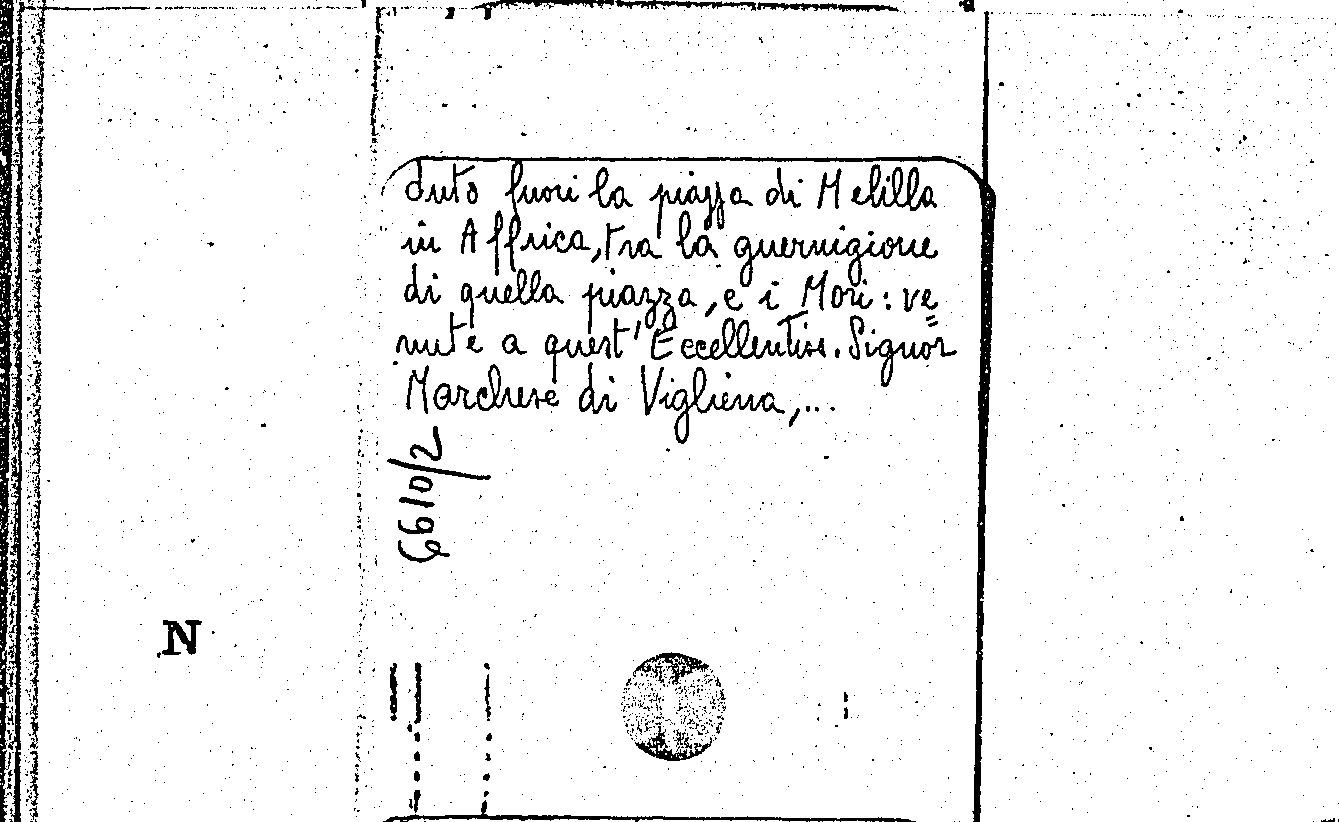 duto fuori la piazza di Melilla
in Affrica, tra la guernigione
di quella piazza, e i Mori: ve=
nute a quest' Eccellentiss. Signor
Marchese di Vigliena,...
6610/2
N